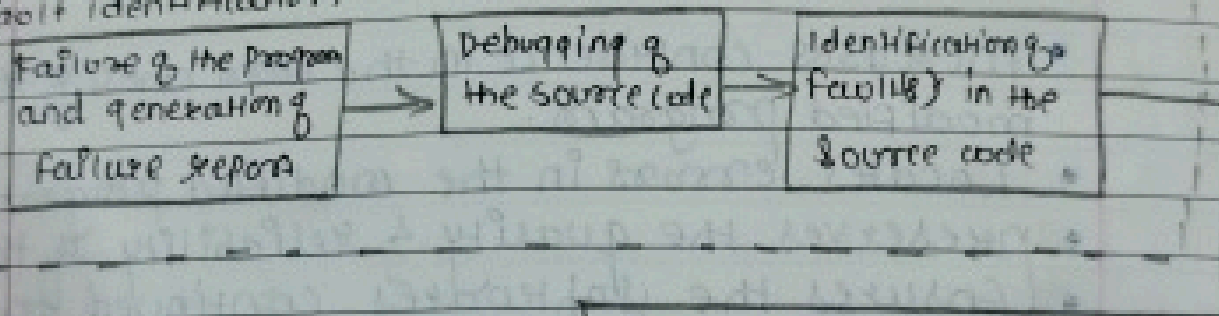 Fault Identification
Failure of the program
and generation of
failure report
Debugging of
the source code
Identification of
fault(s) in the
source code